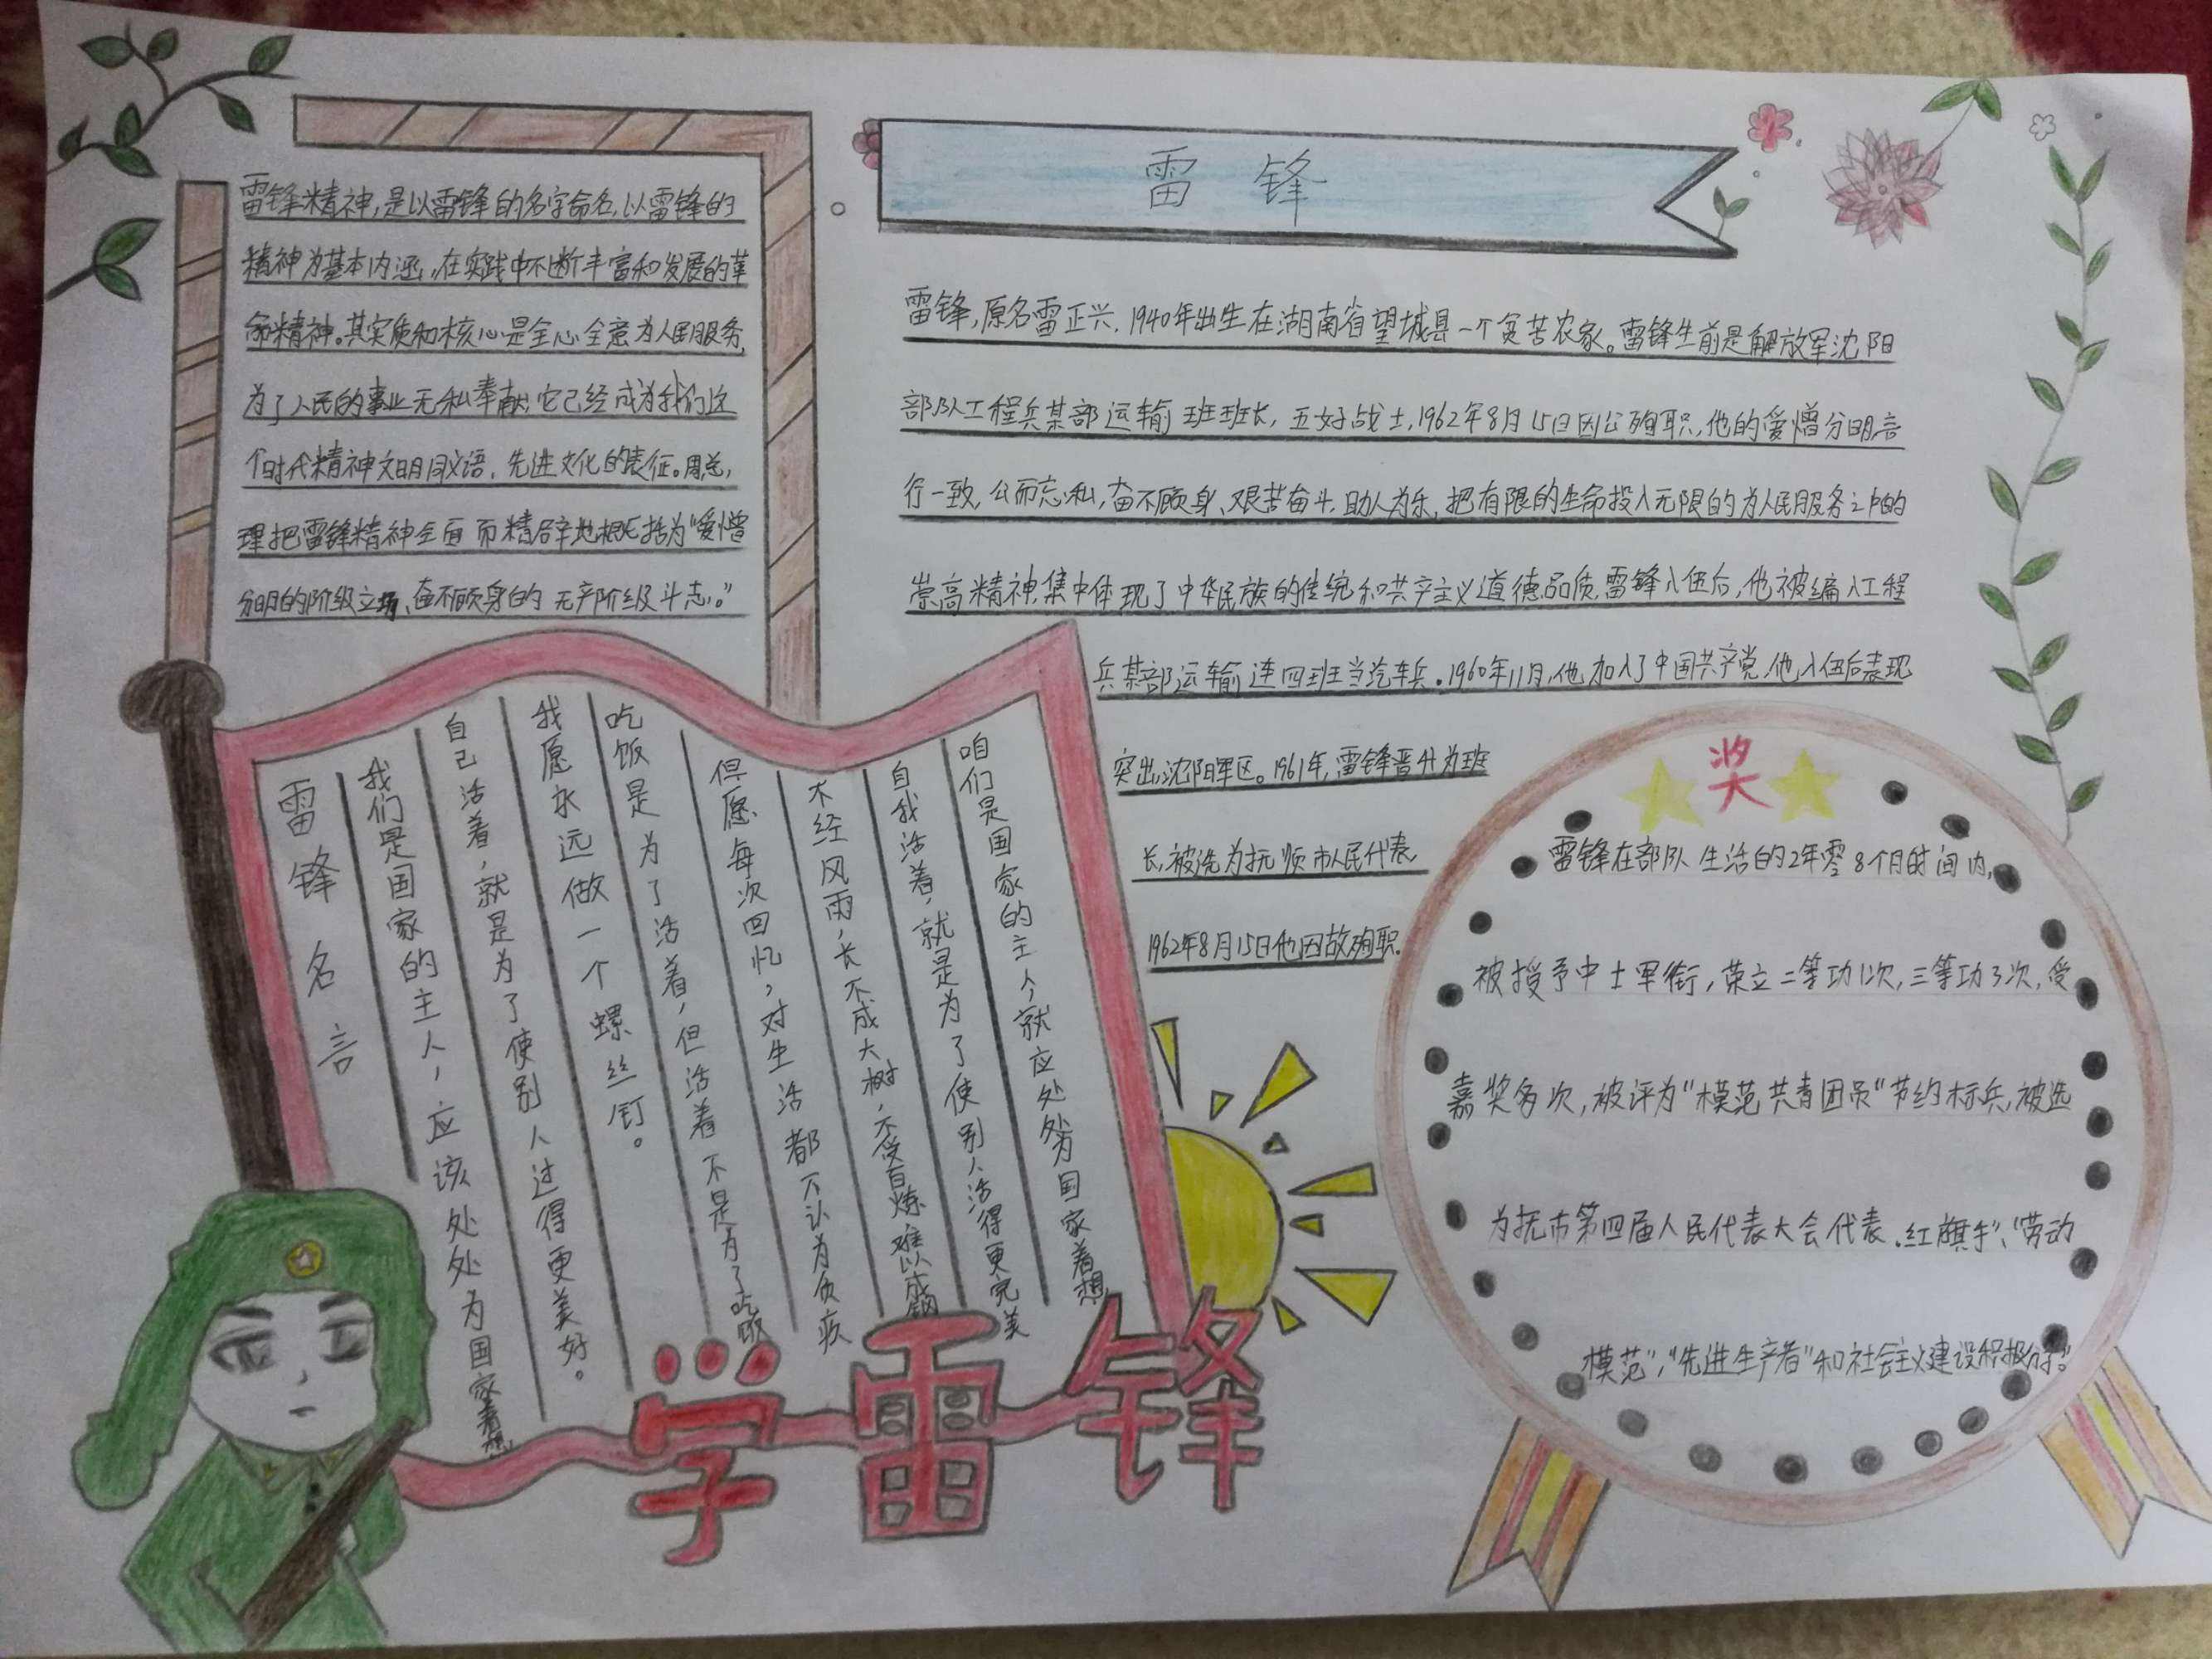 雷锋精神,是以雷锋的名字命名,以雷锋的
精神为基本内涵,在实践中不断丰富和发展的革
命精神。其实质和核心是全心全意为人民服务,
为了人民的事业无私奉献,它已经成为我们这
个时代精神文明同义语、先进文化的表征。周总,
理把雷锋精神全面而精辟地概括为“爱憎
分明的阶级立场、奋不顾身的无产阶级斗志。”
雷 锋
雷锋,原名雷正兴,1940年出生在湖南省望城县一个贫苦农家。雷锋生前是解放军沈阳
部队工程兵某部运输班班长,五好战士,1962年8月15日因公殉职,他的爱憎分明,言
行一致,公而忘私,奋不顾身、艰苦奋斗,助人为乐,把有限的生命投入无限的为人民服务之中的
崇高精神,集中体现了中华民族的传统和共产主义道德品质,雷锋入伍后,他被编入工程
兵某部运输连四班当汽车兵。1960年11月,他加入了中国共产党,他入伍后表现
突出,沈阳军区。1961年,雷锋晋升为班
长,被选为抚顺市人民代表,
1962年8月15日他因故殉职.
雷锋名言
我们是国家的主人,应该处处为国家着想
自己活着,就是为了使别人过得更美好。
我愿永远做一个螺丝钉。
吃饭是为了活着,但活着不是为了吃饭
但愿每次回忆,对生活都不认为负疚
不经风雨,长不成大树,不受百炼,难以成钢
自我活着,就是为了使别人活得更完美
咱们是国家的主人,就应处处为国家着想
学雷锋
奖
雷锋在部队生活的2年零8个月时间内,
被授予中士军衔,荣立二等功1次,三等功3次,受
嘉奖多次,被评为“模范共青团员”节约标兵,被选
为抚市第四届人民代表大会代表.红旗手”、“劳动
模范”,“先进生产者”和社会主义建设积极分子。”